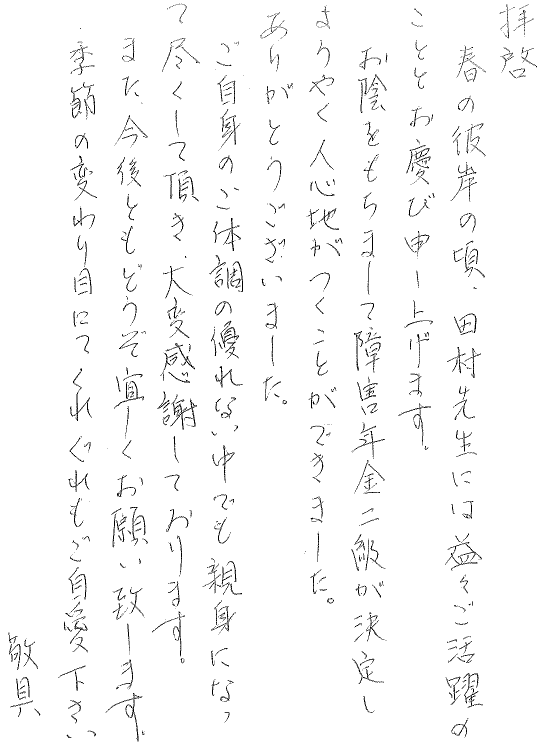 拝啓
春の彼岸の頃、田村先生には益々ご活躍の
こととお慶び申し上げます。
お陰をもちまして障害年金二級が決定し
ようやく人心地がつくことができました。
ありがとうございました。
ご自身のご体調の優れない中でも親身になっ
て尽くして頂き、大変感謝しております。
また、今後ともどうぞ宜しくお願い致します。
季節の変わり目にてくれぐれもご自愛下さい
敬具